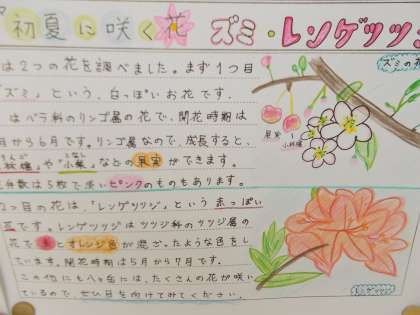 初夏に咲く花 ズミ・レンゲツツジ
ズミの花
は2つの花を調べました。まず1つ目
「ズミ」という、白っぽいお花です。
はバラ科のリンゴ属の花で、開花時期は
月から6月です。リンゴ属なので、成長すると、
"林檎"や"小梨"などの果実ができます。
は5枚で淡いピンクのものもあります。
果実
小林檎
2つ目の花は、「レンゲツツジ」という赤っぽい
です。レンゲツツジはツツジ科のツツジ属の
花で赤とオレンジ色が混ざったような色をし
ています。開花時期は5月から7月です。
この他にも八ヶ岳には、たくさんの花が咲い
ているので、ぜひ目を向けてみてください。
レンゲツツジ